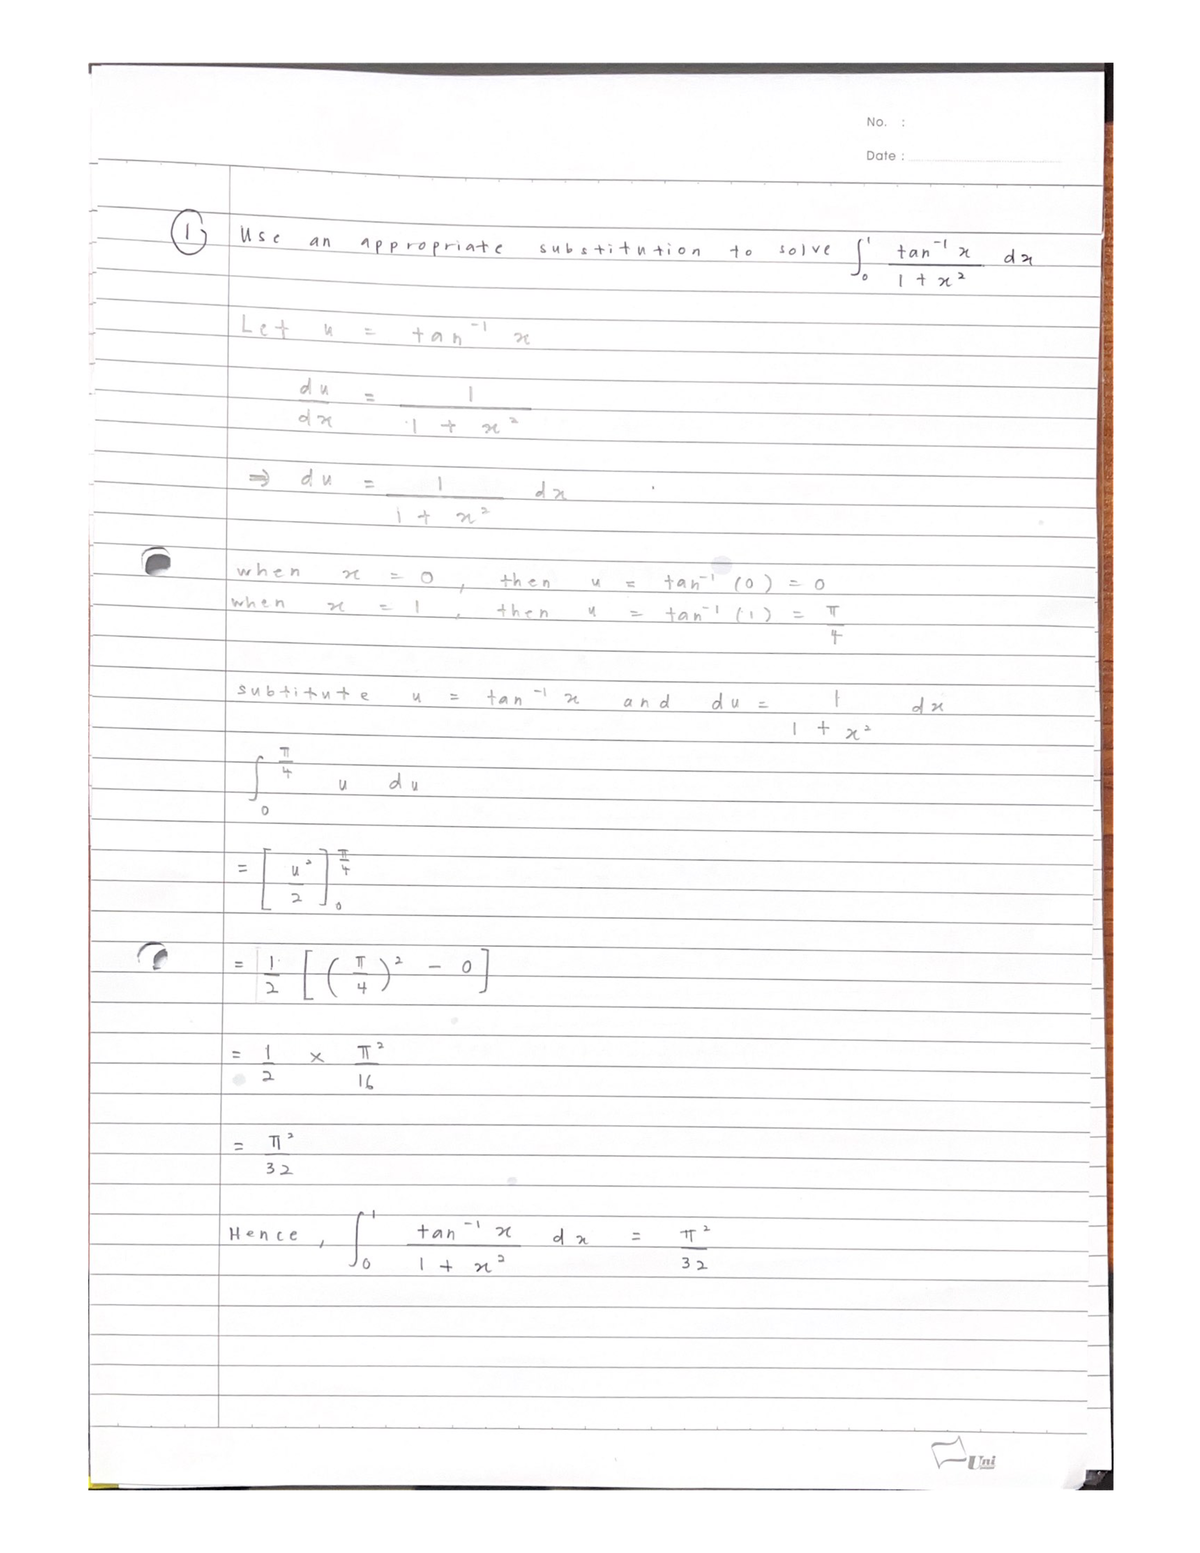 No. :
Date :
1 Use an appropriate substitution to solve ∫₀¹ tan⁻¹ x / 1 + x² dx
Let u = tan⁻¹ x
du / dx = 1 / 1 + x²
⇒ du = 1 / 1 + x² dx
when x = 0, then u = tan⁻¹ (0) = 0
when x = 1, then u = tan⁻¹ (1) = π / 4
subtitute u = tan⁻¹ x and du = 1 / 1 + x² dx
∫₀^(π/4) u du
= [u² / 2]₀^(π/4)
= 1/2 [(π/4)² - 0]
= 1/2 × π²/16
= π²/32
Hence, ∫₀¹ tan⁻¹ x / 1 + x² dx = π²/32
Uni